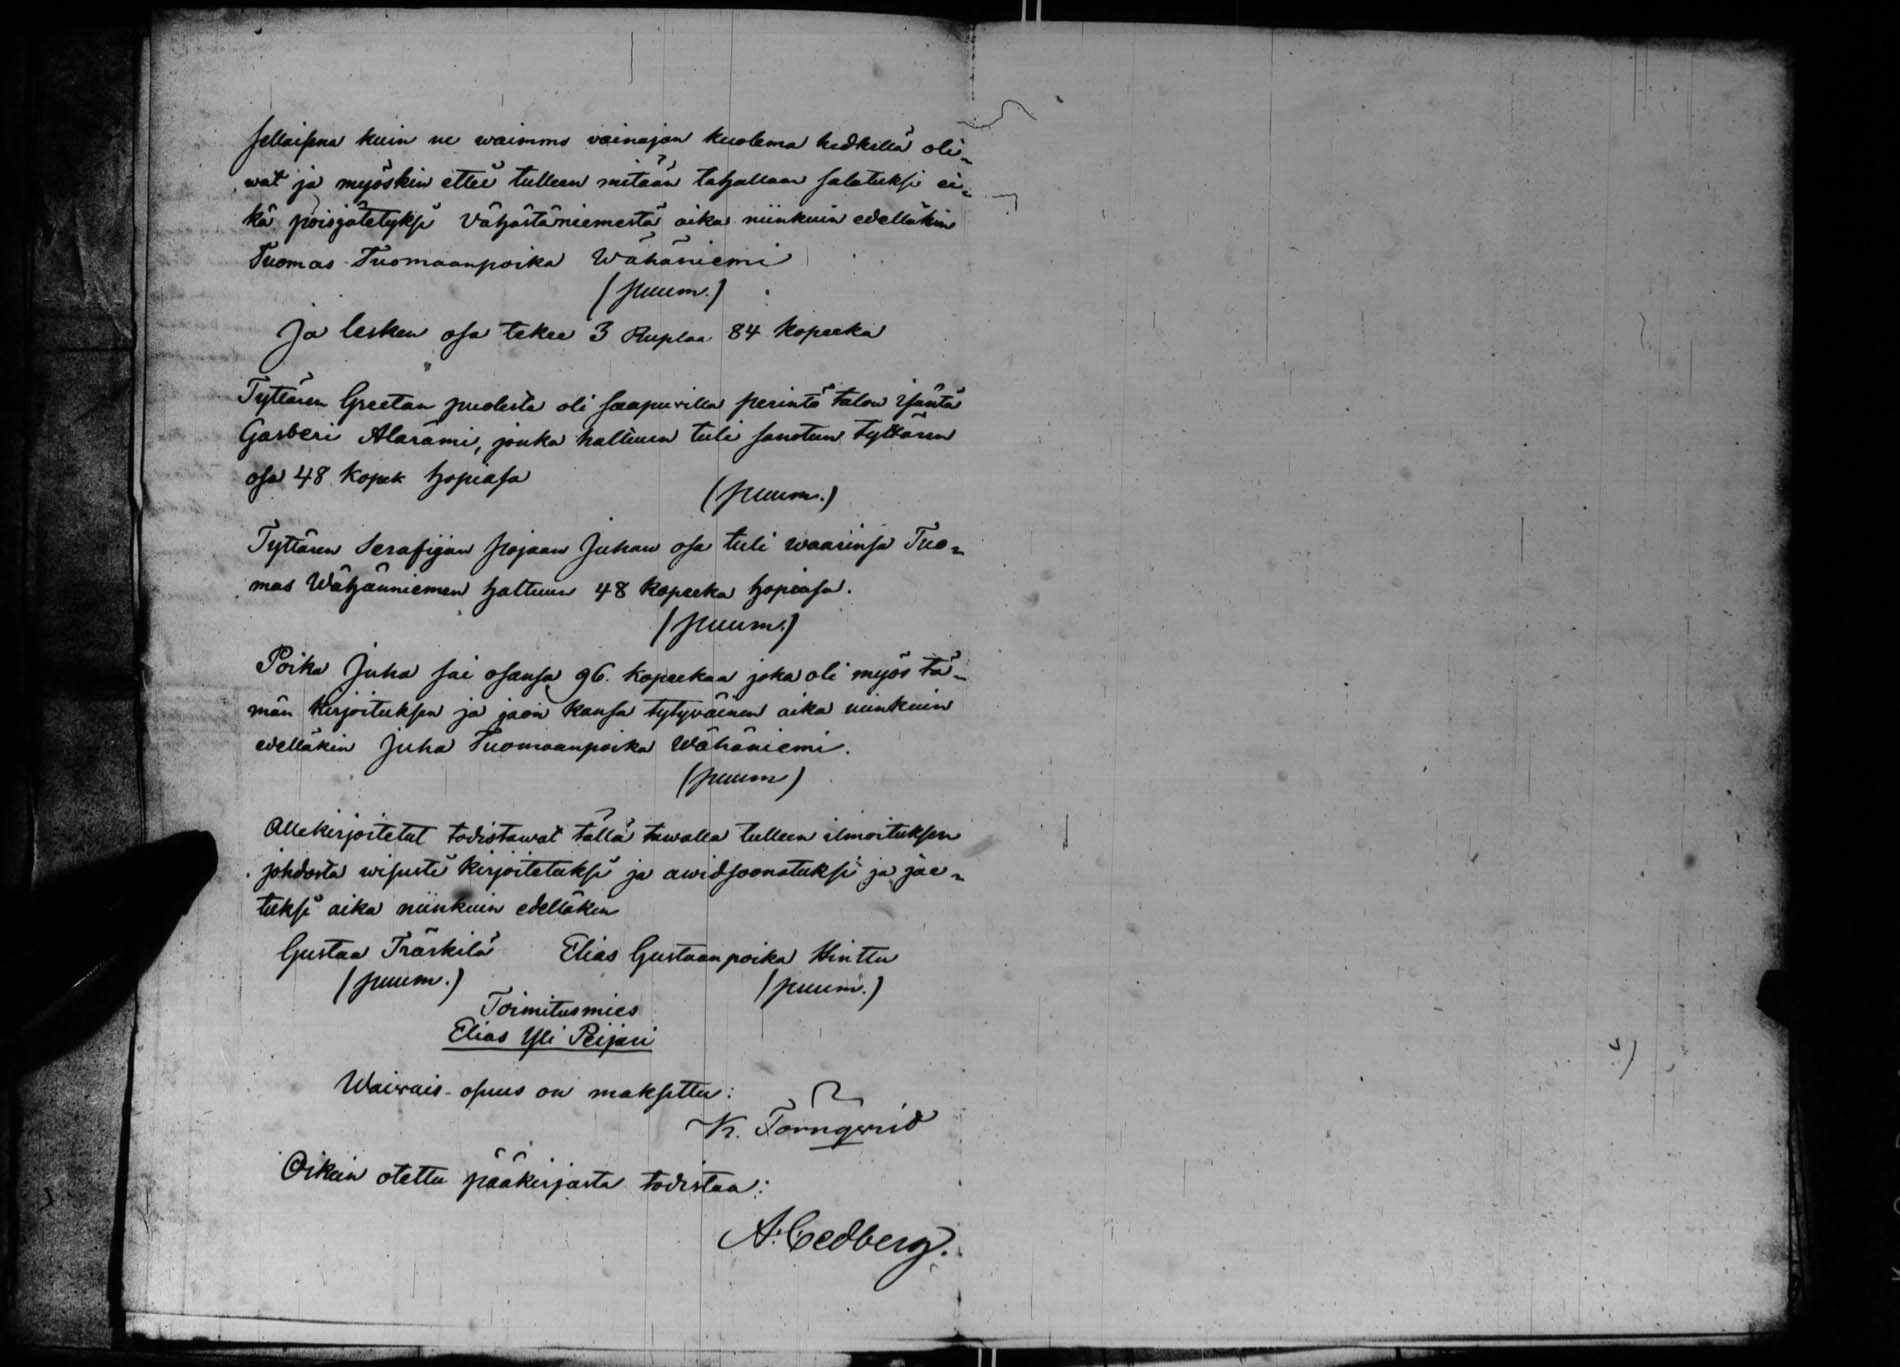 sellaisna kuin ne waimmo vainajan kuolema hedkellä oli-
wat ja myöskin ettei tulleen mitään tahallaan salatuksi ei-
kä poisjätetyksi Vähästäniemestä aika niinkuin edelläkin
Tuomas Tuomaanpoika Wähäniemi
(puum.)
Ja lesken osa tekee 3 Ruplaa 84 kopeeka
Tyttären Greetan puolesta oli saapuvilla perintö talon isäntä
Gasberi Alarämi, jonka haltuun tuli sanotun tyttären
osa 48 kopek hopiasa
(puum.)
Tyttären Serafijan pojaan Juhan osa tuli waarinsa Tuo-
mas Wähänniemen haltuun 48 kopeeka hopiasa.
(puum.)
Poika Juha sai osansa 96. kopeekaa joka oli myös tä-
män kirjoituksen ja jaon kansa tytyväinen aika niinkuin
edelläkin Juha Tuomaanpoika Wähäniemi.
(puum)
Allekirjoitetut todistawat tällä tawalla tulleen ilmoituksen
johdosta wisusti kirjoitetuksi ja awidsoonatuksi ja jae-
tuksi aika niinkuin edelläkin
Gustaa Träskilä Elias Gustaanpoika Hinttu
(puum.) (puum.)
Toimitusmies
Elias Yli Peijari
Waiwais-osuus on maksettu:
K. Törnqwid
Oikein otettu pääkirjasta todistaa:
A. Cedberg.